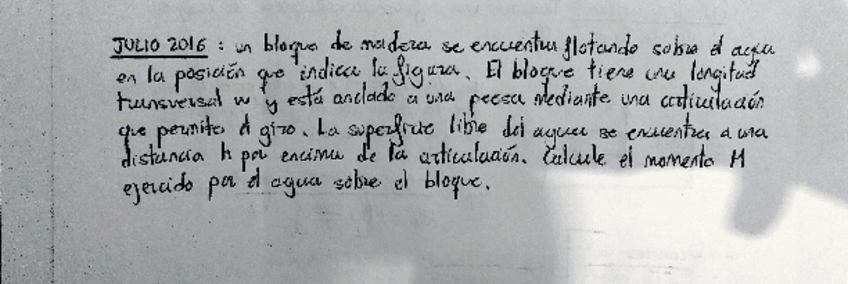 JULIO 2016 : un bloque de madera se encuentra flotando sobre el agua
en la posición que indica la figura. El bloque tiene una longitud
transversal w y está anclado a una pecsa mediante una articulación
que permite el giro. La superficie libre del agua se encuentra a una
distancia h por encima de la articulación. Calcule el momento M
ejercido por el agua sobre el bloque.